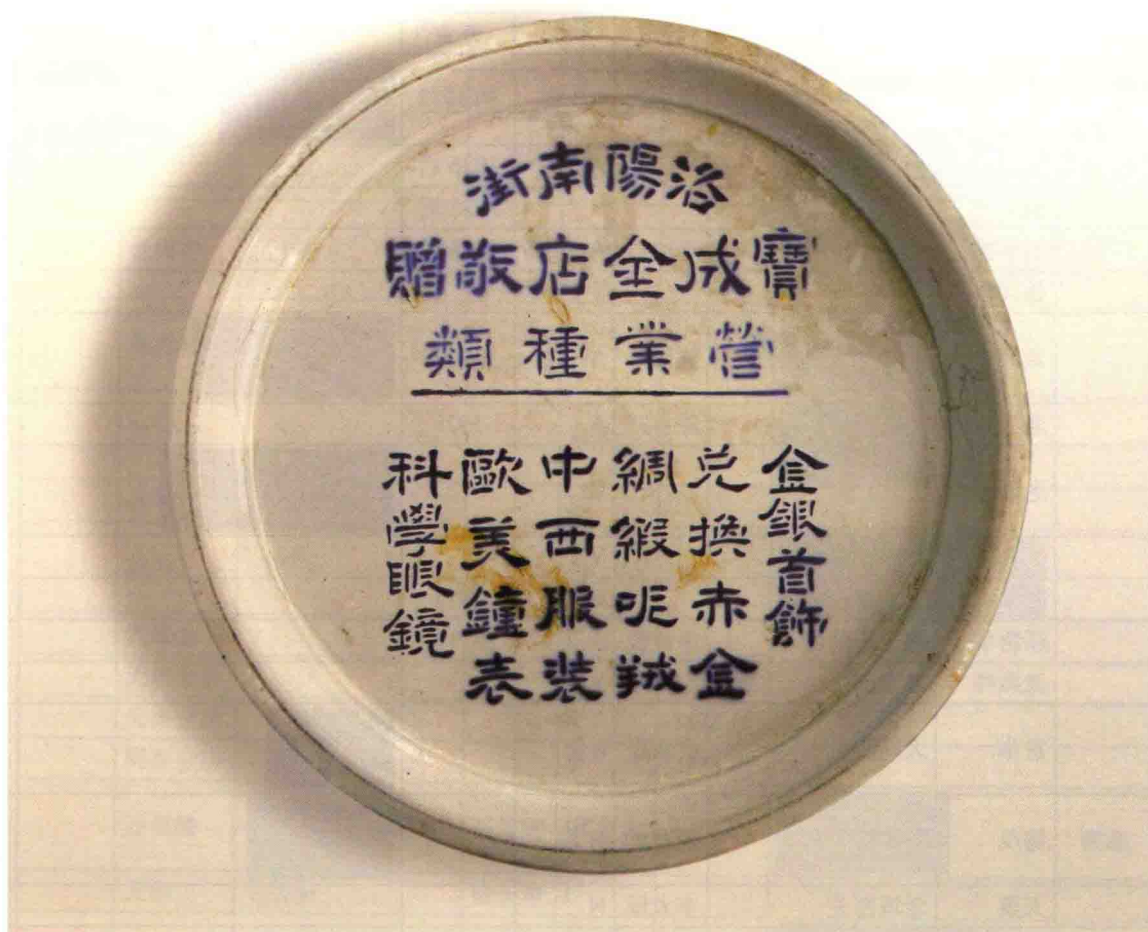 洛陽南街
寶成金店敬贈
營業種類
金銀首飾
兑換赤金
綢緞呢羢
中西服裝
歐美鐘表
科學眼鏡